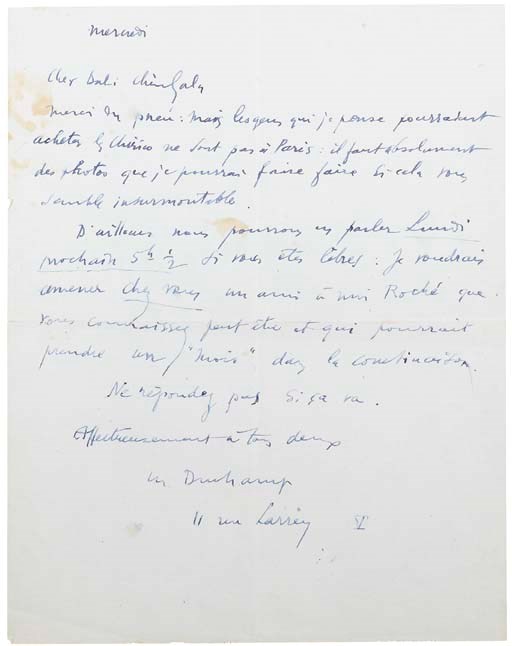 Mercredi
Cher Dali chère Gala
Merci du pneu : mais les gens qui je pense pourraient
acheter le Chirico ne sont pas à Paris : il faut absolument
des photos que je pourrai faire faire si cela vous
semble insurmontable.
D'ailleurs nous pourrons en parler Lundi
prochain 5h 1/2 si vous êtes libres : Je voudrais
amener chez vous un ami à moi Roché que
vous connaissez peut être et qui pourrait
prendre un "mois" dans la combinaison.
Ne répondez pas si ça va.
Affectueusement à tous deux
M Duchamp
11 rue Larrey V